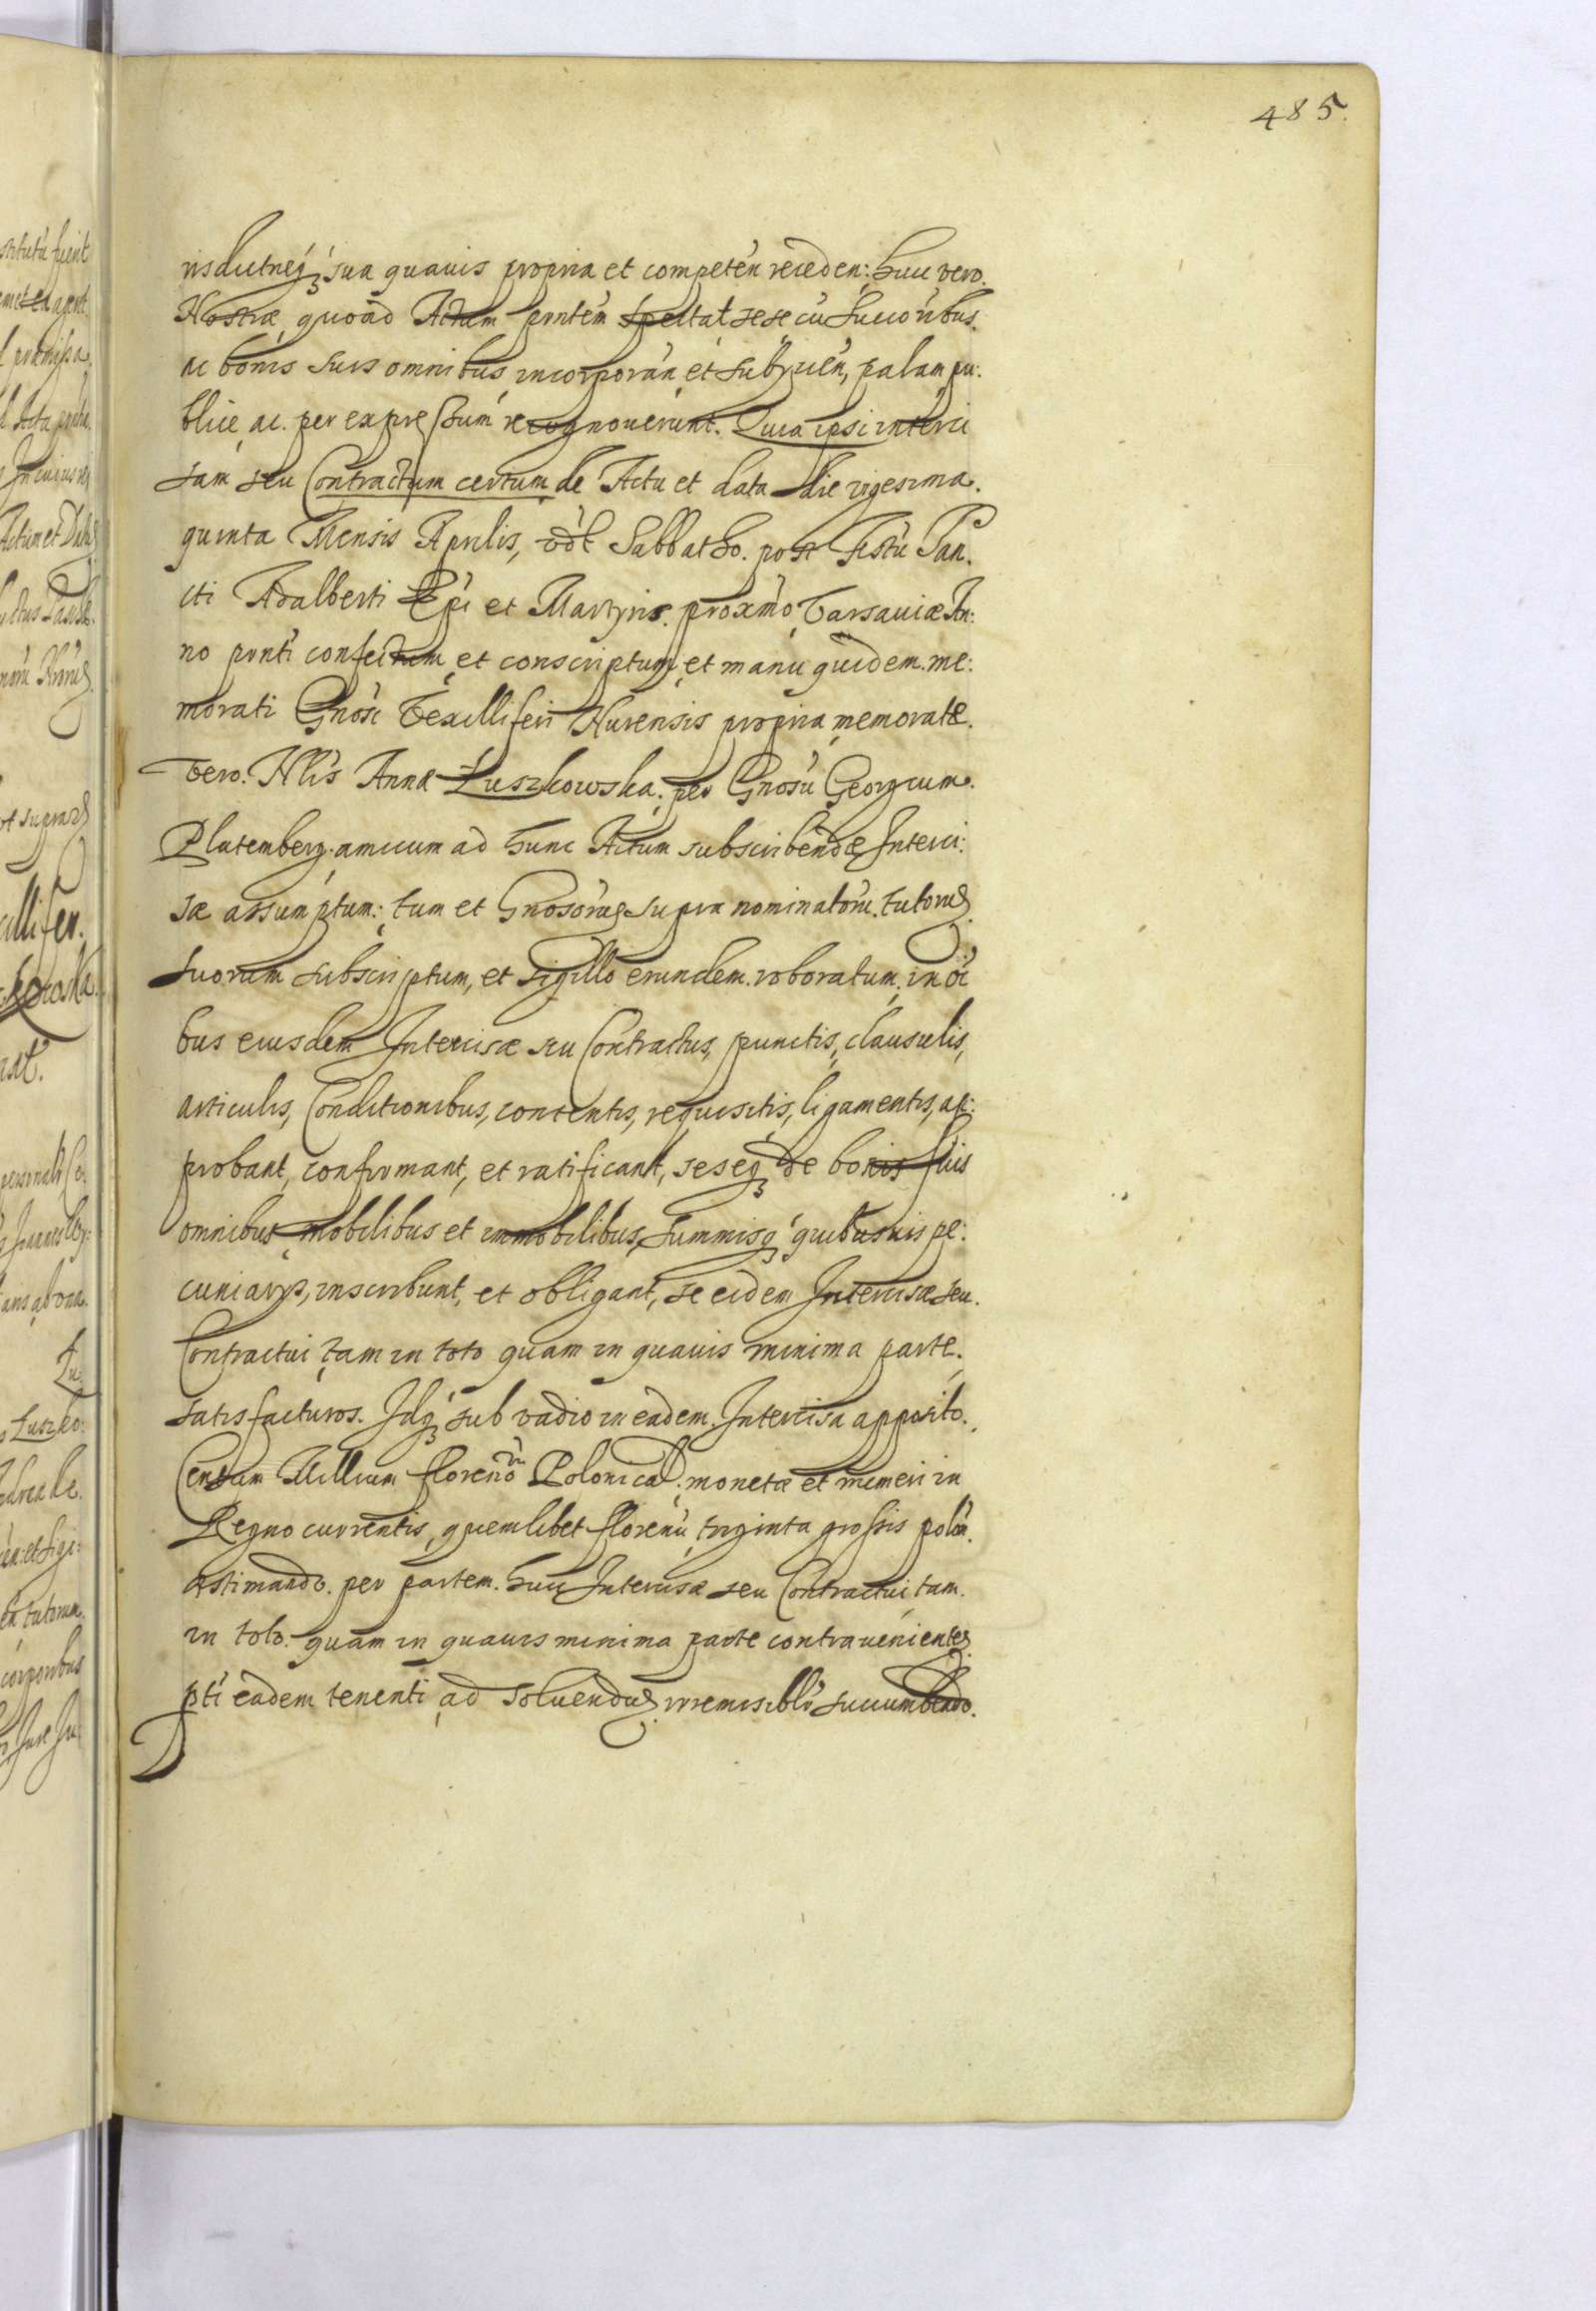 485.
risdictneq₃ sua quauis propria et competen receden: huic vero.
Nostræ quoad Actum pntem spectat sese cu Succoribus.
ac bonis suis omnibus incorporan et subycien, palam pu:
blice ac. per expressum recognouerunt. Quia ipsi interci
sam seu Contractum certum de Actu et data die vigesima.
quinta Mensis Aprilis, vdt Sabbatho. post Festu San.
cti Adalberti Epi et Martyris. proximo Varsauiæ An:
no pnti confectum et conscriptum et manu quidem. me:
morati Gnosi Vexilliferi Nurensis propria memoratæ.
Vero. Nlis Annæ Łuszkowska. per Gnosu Georgium.
Plutemberg. amicum ad hunc Actum subscribendæ Interci:
sæ assumptum: tum et Gnosoru supra nominatoru. tutoru
suorum subscriptum, et sigillo eorundem. roboratum. in oi
bus eiusdem Intercisæ seu Contractus, punctis, clausulis,
articulis, Conditionibus, contentis, requisitis, ligamentis, ap:
probant, confirmant, et ratificant, seseq₃ de bonis suis
omnibus mobilibus et immobilibus, summisq₃ quibusuis pe:
cuniarys, inscribunt, et obligant, se eidem Intercisæ seu.
Contractui tam in toto quam in quauis minima parte.
satisfacturos. Idq₃ sub vadio in eadem. Intercisa apposito.
Centum Millium florenoru Polonical. monetæ et numeri in
Regno currentis, quemlibet florenu triginta grossis polon.
æstimando. per partem. huic Intercisæ seu Contractui tam.
in toto. quam in quauis minima parte contrauenientes
pti eadem tenenti ad soluendu irremisiblr succumbendo.